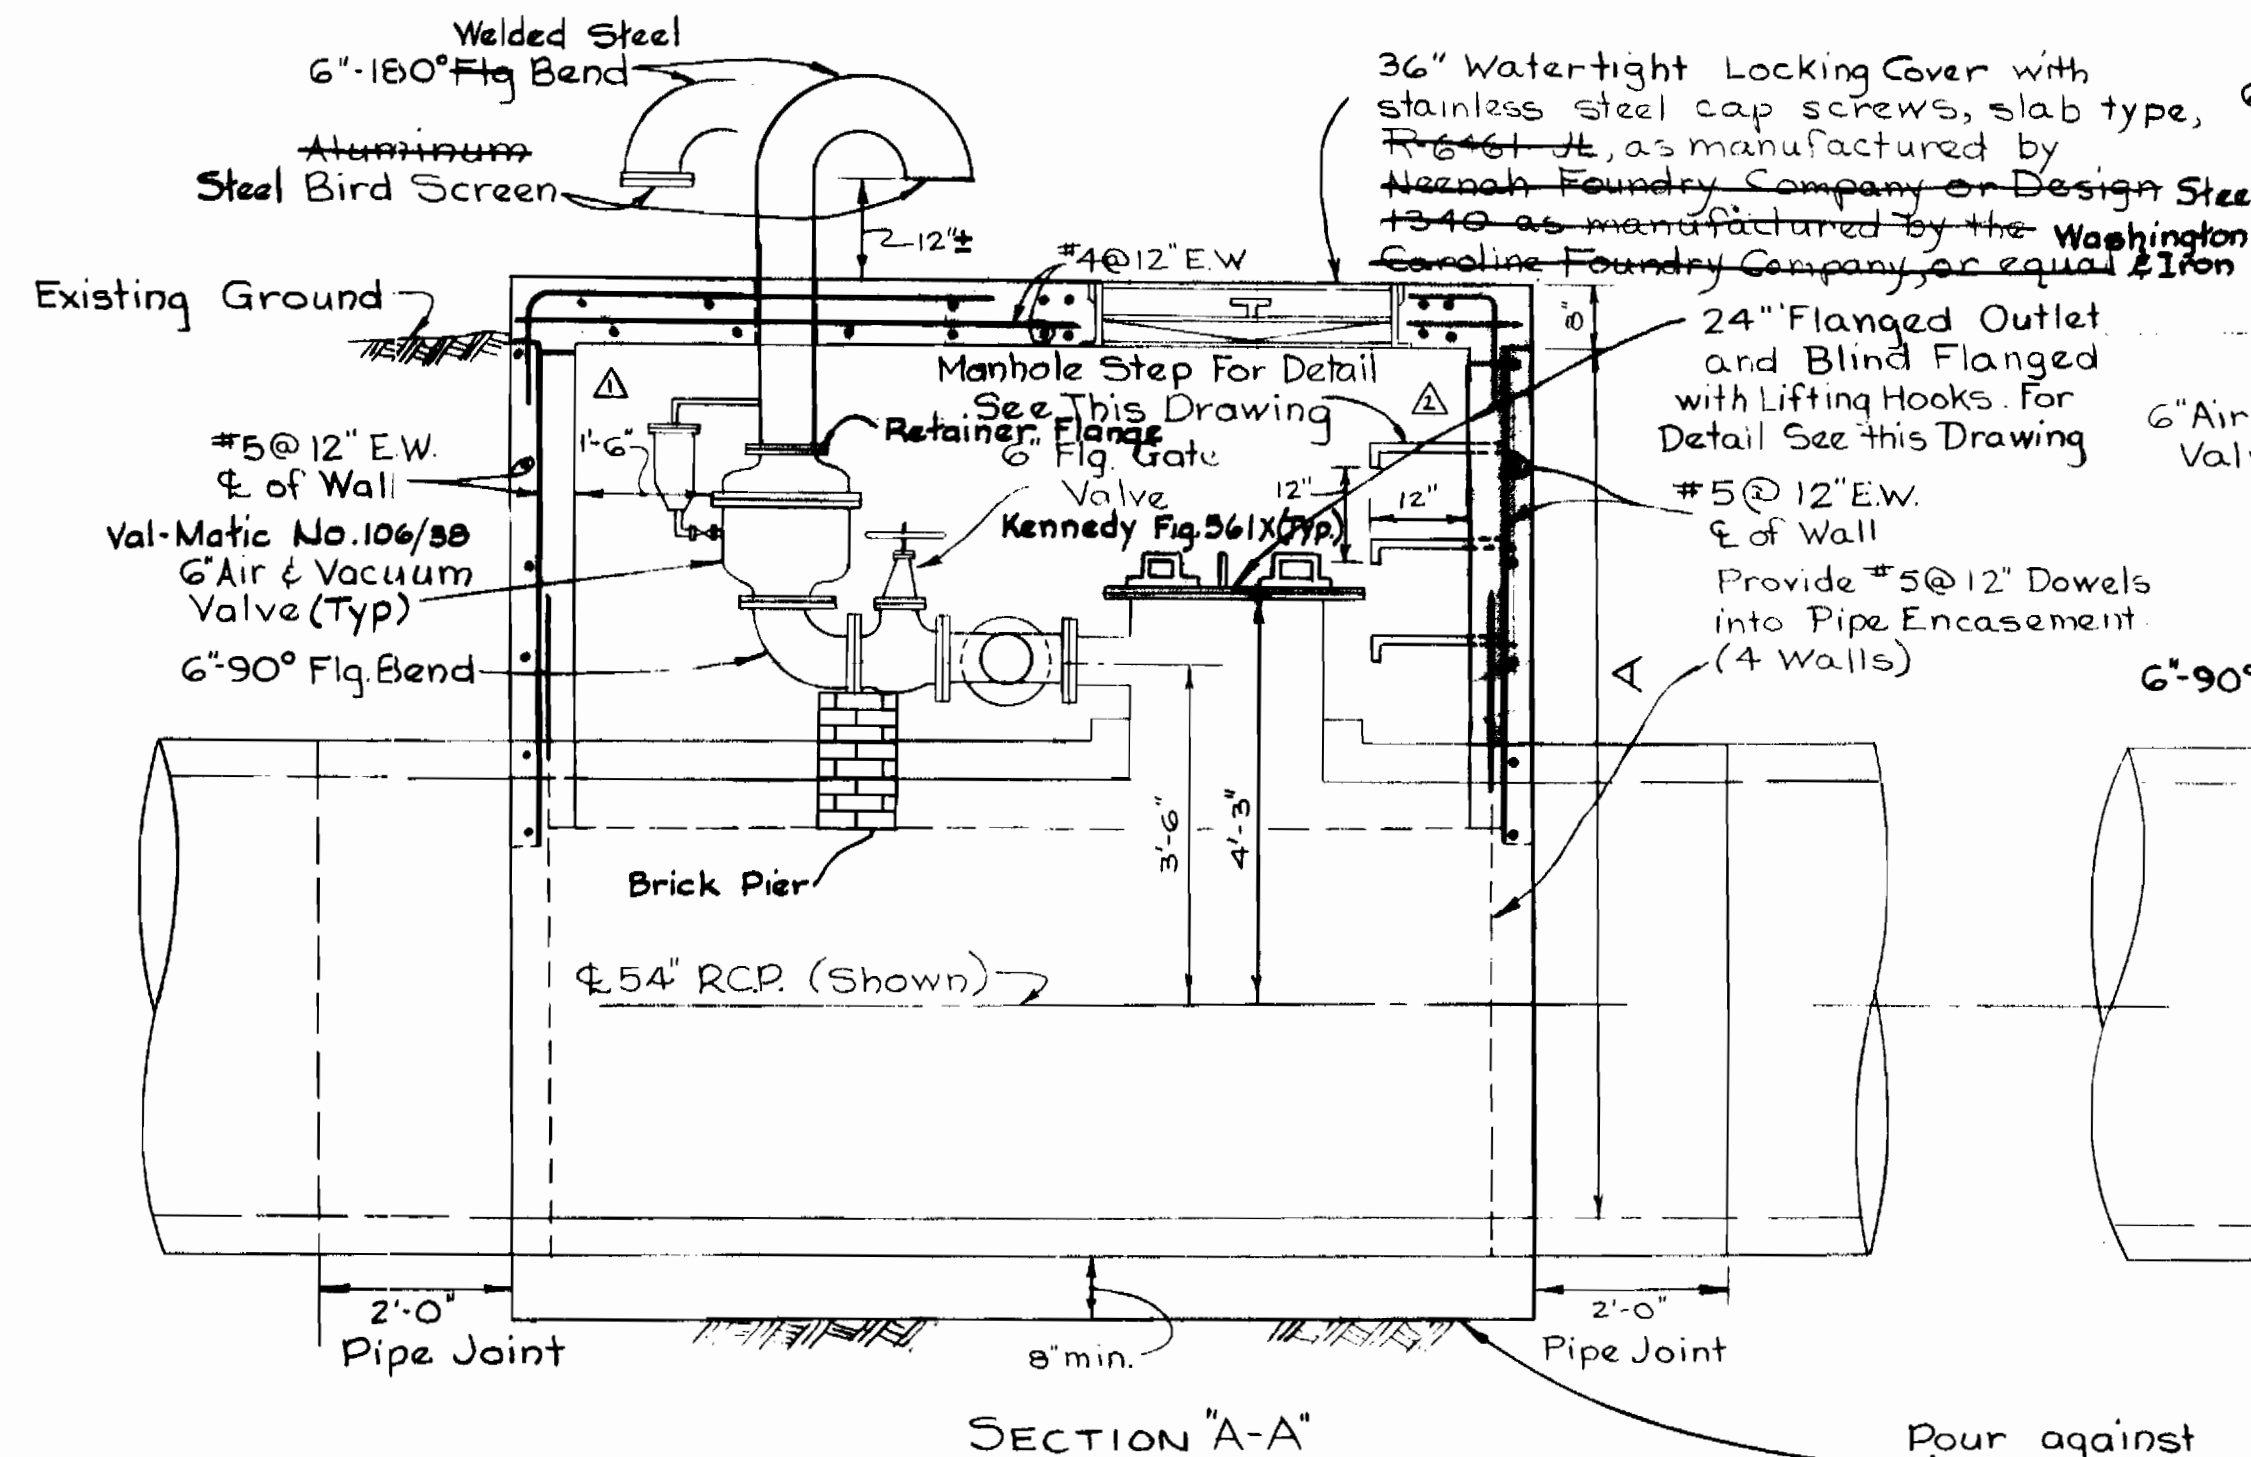 Welded Steel
6"-180° Flg Bend
Aluminum
Steel Bird Screen
12"±
#4@12" E.W
36" Watertight Locking Cover with
stainless steel cap screws, slab type,
R-6461-JL, as manufactured by
Neenah Foundry Company or Design Stee
1340 as manufactured by the Washington
Caroline Foundry Company, or equal & Iron
Existing Ground
8"
24" Flanged Outlet
and Blind Flanged
with Lifting Hooks. For
Detail See this Drawing
Manhole Step For Detail
See This Drawing
1
2
Retainer Flange
6" Flg. Gate
Valve
Kennedy Fig. 561X (Typ.)
#5@12" E.W.
℄ of Wall
1'-6"
12"
12"
Val-Matic No. 106/38
6" Air & Vacuum
Valve (Typ)
6"-90° Flg. Bend
#5@12" E.W.
℄ of Wall
Provide #5@12" Dowels
into Pipe Encasement
(4 Walls)
A
6" Air
Val
6"-90°
3'-6"
4'-3"
Brick Pier
℄ 54" R.C.P. (Shown)
2'-0"
Pipe Joint
8" min.
2'-0"
Pipe Joint
SECTION "A-A"
Pour against